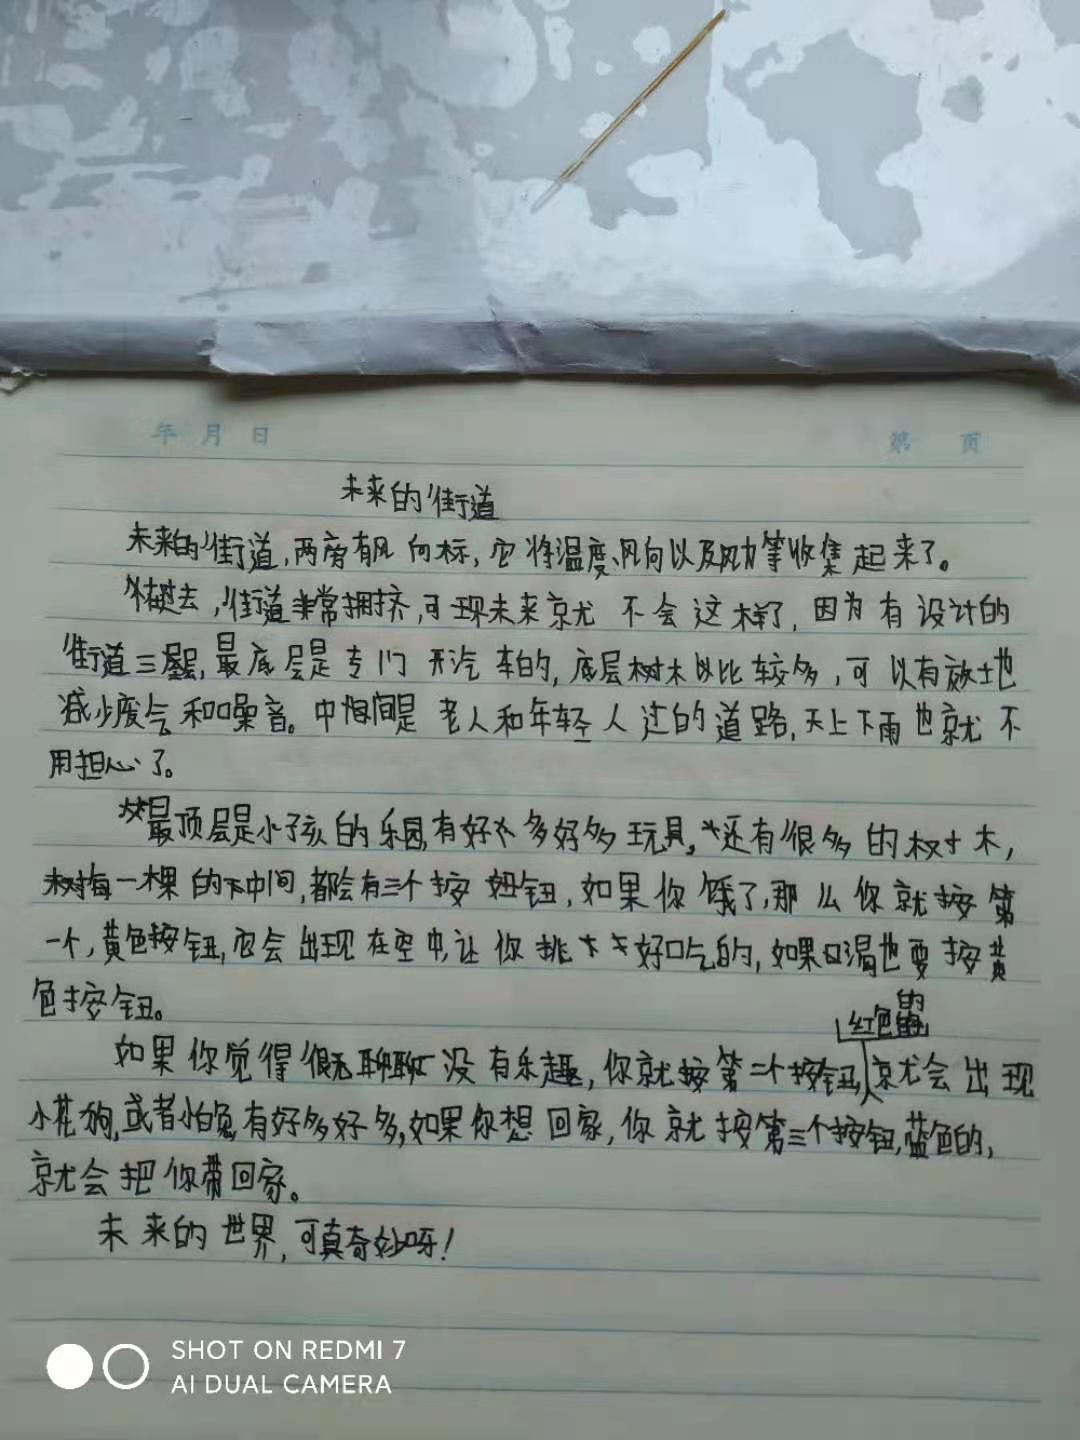 年 月 日 第 页
未来的街道
未来的街道,两旁有风向标,它将温度、风向以及风力等收集起来了。
过去,街道非常拥挤,可现未来就不会这样了,因为有设计的
街道三层,最底层是专门开汽车的,底层树木以比较多,可以有效地
减少废气和噪音。中间是老人和年轻人过的道路,天上下雨也就不
用担心了。
最顶层是小孩的乐园,有好多好多玩具,还有很多的树木,
每一棵的中间,都会有三个按钮,如果你饿了,那么你就按第
一个,黄色按钮,它会出现在空中,让你挑好吃的,如果口渴也要按黄
色按钮。
红色的
如果你觉得很无聊没有乐趣,你就按第二个按钮,就会出现
小花狗,或者小白兔有好多好多,如果你想回家,你就按第三个按钮,蓝色的,
就会把你带回家。
未来的世界,可真奇妙呀!
SHOT ON REDMI 7
AI DUAL CAMERA